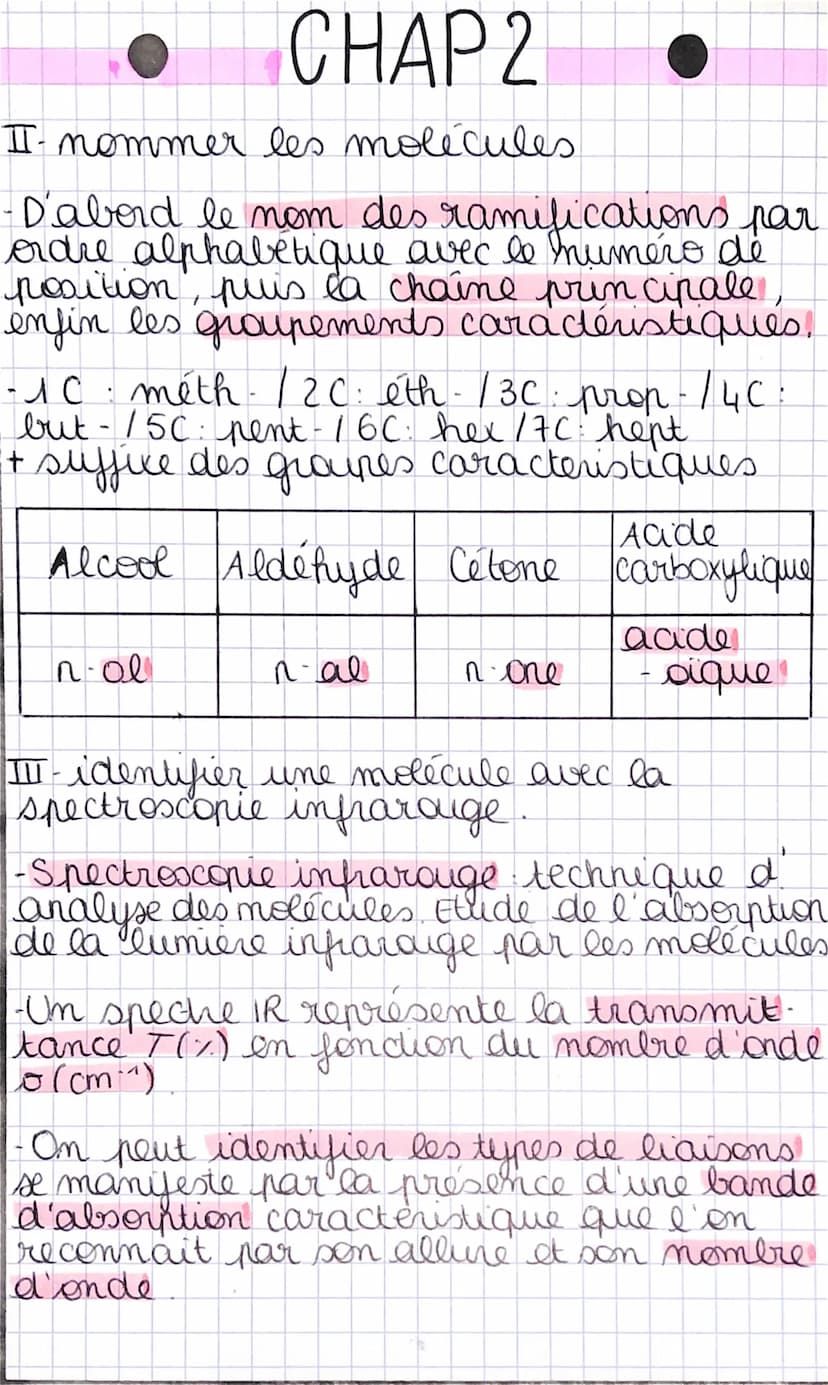 CHAP 2
II- nommer les molécules
- D'abord le nom des ramifications par
ordre alphabétique avec le numéro de
position, puis la chaîne principale,
enfin les groupements caractéristiques.
- 1C : méth- / 2C : éth- / 3C : prop- / 4C :
but- / 5C : pent- / 6C : hex / 7C : hept
+ suffixe des groupes caracteristiques
Alcool Aldéhyde Cétone Acide carboxylique
n-ol n-al n-one acide -oïque
III- identifier une molécule avec la
spectroscopie infrarouge.
- Spectroscopie infrarouge : technique d'
analyse des molécules. Etude de l'absorption
de la lumière infrarouge par les molécules
- Un spectre IR représente la transmit-
tance T(%) en fonction du nombre d'onde
σ (cm⁻¹)
- On peut identifier les types de liaisons
se manifeste par la présence d'une bande
d'absorption caractéristique que l'on
reconnait par son allure et son nombre
d'onde.